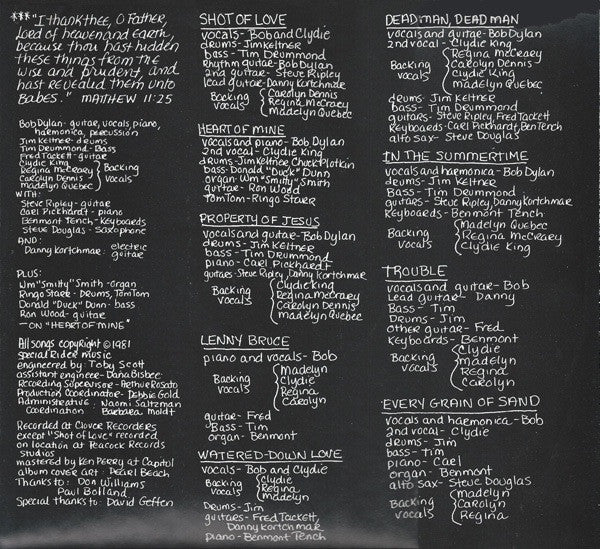 ***"I thank thee, O Father,
Lord of heaven and Earth,
because thou hast hidden
these things from the
wise and prudent, and
hast revealed them unto
Babes." MATTHEW 11:25
Bob Dylan - guitar, vocals, piano,
harmonica, percussion
Jim Keltner - drums
Tim Drummond - Bass
Fred Tackett - guitar
Clydie King
Regina McCrarey
Carolyn Dennis
Madelyn Quebec
Backing
Vocals
WITH:
Steve Ripley - guitar
Carl Pickhardt - piano
Benmont Tench - Keyboards
Steve Douglas - Saxophone
AND:
Danny Kortchmar: electric
guitar
PLUS:
Wm "Smitty" Smith - organ
Ringo Starr - Drums, Tom Tom
Donald "Duck" Dunn - bass
Ron Wood - guitar
— ON "HEART OF MINE"
All songs copyright ©1981
Special Rider music
engineered by: Toby Scott
assistant engineer - Dana Bisbee
Recording Supervisor - Arthur Rosato
Production Coordinator - Debbie Gold
Administrative Coordination: Naomi Saltzman
Barbara Moldt
Recorded at Clover Recorders
except "Shot of Love" recorded
on location at Peacock Records
studios
mastered by Ken Perry at Capitol
album cover art: Pearl Beach
Thanks to: Don Williams
Paul Bolland
Special thanks to: David Geffen
SHOT OF LOVE
vocals - Bob and Clydie
drums - Jim Keltner
bass - Tim Drummond
Rhythm guitar - Bob Dylan
2nd guitar - Steve Ripley
lead guitar - Danny Kortchmar
Backing
vocals
Carolyn Dennis
Regina McCrarey
madelyn Quebec
HEART OF MINE
vocals and piano - Bob Dylan
2nd vocal - Clydie King
drums - Jim Keltner, Chuck Plotkin
bass - Donald "Duck" Dunn
organ - Wm "Smitty" Smith
guitar - Ron Wood
Tom Tom - Ringo Starr
PROPERTY OF JESUS
vocals and guitar - Bob Dylan
drums - Jim Keltner
bass - Tim Drummond
piano - Carl Pickhardt
guitars - Steve Ripley, Danny Kortchmar
Backing
vocals
Clydie King
Regina McCrarey
Carolyn Dennis
madelyn Quebec
LENNY BRUCE
piano and vocals - Bob
Backing
vocals
Madelyn
Clydie
Regina
Carolyn
guitar - Fred
Bass - Tim
organ - Benmont
WATERED-DOWN LOVE
vocals - Bob and Clydie
Backing
vocals
Clydie
Regina
madelyn
Drums - Jim
guitars - Fred Tackett,
Danny Kortchmar
piano - Benmont Tench
DEAD MAN, DEAD MAN
vocals and guitar - Bob Dylan
2nd vocal - Clydie King
Backing
vocals
Regina McCrarey
Carolyn Dennis
Clydie King
madelyn Quebec
drums - Jim Keltner
Bass - Tim Drummond
guitars - Steve Ripley, Fred Tackett
Keyboards - Carl Pickhardt, Ben Tench
alto sax - Steve Douglas
IN THE SUMMERTIME
vocals and harmonica - Bob Dylan
drums - Jim Keltner
Bass - Tim Drummond
guitars - Steve Ripley, Danny Kortchmar
Keyboards - Benmont Tench
Backing
vocals
Madelyn Quebec
Regina McCrarey
Clydie King
TROUBLE
vocals and guitar - Bob
Lead guitar - Danny
Bass - Tim
Drums - Jim
other guitar - Fred
Keyboards - Benmont
Backing
vocals
Clydie
madelyn
Regina
Carolyn
EVERY GRAIN OF SAND
vocals and harmonica - Bob
2nd vocal - Clydie
drums - Jim
bass - Tim
piano - Carl
organ - Benmont
alto sax - Steve Douglas
Backing
vocals
madelyn
Carolyn
Regina